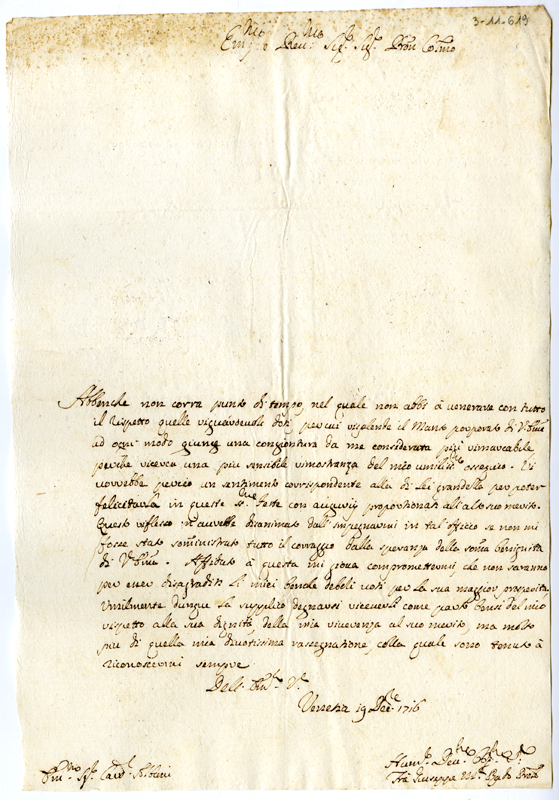 3-11-619
Em.mo e Rev.mo Sig.r Sig.r Pron Col.mo
Abbenche non corra punto di tempo, nel quale non abbi à venerare con tutto
il rispetto quelle riguardevole doti, per cui risplende il Manto porporato di V. Em.
ad ogni modo giunge una congiontura da me considerata più rimarcabile
perche ricerca una piu sensibile rimostranza del mio umiliss.mo ossequio. Vi
vorrebbe percio un sentimento corrispondente alla di lei grandezza per poter
felicitarla in queste S.me Feste con augurij proportionati all'alto suo merito.
Questo riflesso m'avrebbe disanimato dall'impegnarmi in tal officio se non mi
fosse stato somministrato tutto il corraggio dalla speranza della somma benignità
di V. Em. Affidato à questa mi giova compromettermi, che non saranno
per esser disagraditi li miei benche deboli voti per la sua maggior prosperità.
Umilmente dunque la supplico degnarsi riceverli come parti del mio
rispetto alla sua dignità, della mia riverenza al suo merito, ma molto
piu di quella mia divotissima rassegnatione, colla quale sono tenuto à
riconoscermi sempre
Dell' Em. V.
Venetia 19 Dec.bre 1716
Em.mo Sig.r Card. Albani
Hum.mo Dev.mo
Fra Giuseppe